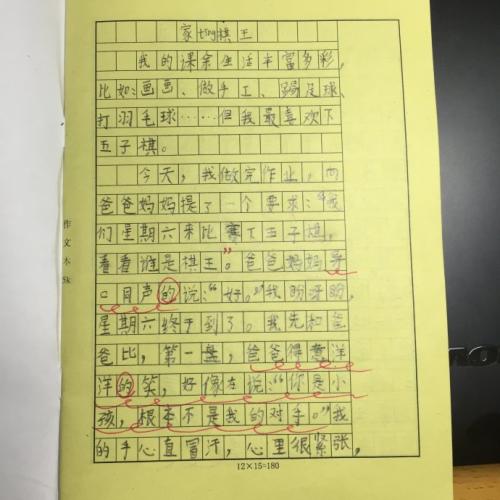 家tíng棋王
我的课余生活丰富多彩，
比如：画画、做手工、踢足球、
打羽毛球……但我最喜欢下
五子棋。
今天，我做完作业，向
爸爸妈妈提了一个要求：“我
们星期六来比赛下五子棋，
看看谁是棋王”。爸爸妈妈异
口同声的说：“好。”我盼呀盼，
星期六终于到了。我先和爸
爸比，第一盘，爸爸得意洋
洋的笑，好像在说：“你是小
孩，根本不是我的对手。”我
的手心直冒汗，心里很紧张，
12×15=180
作文本